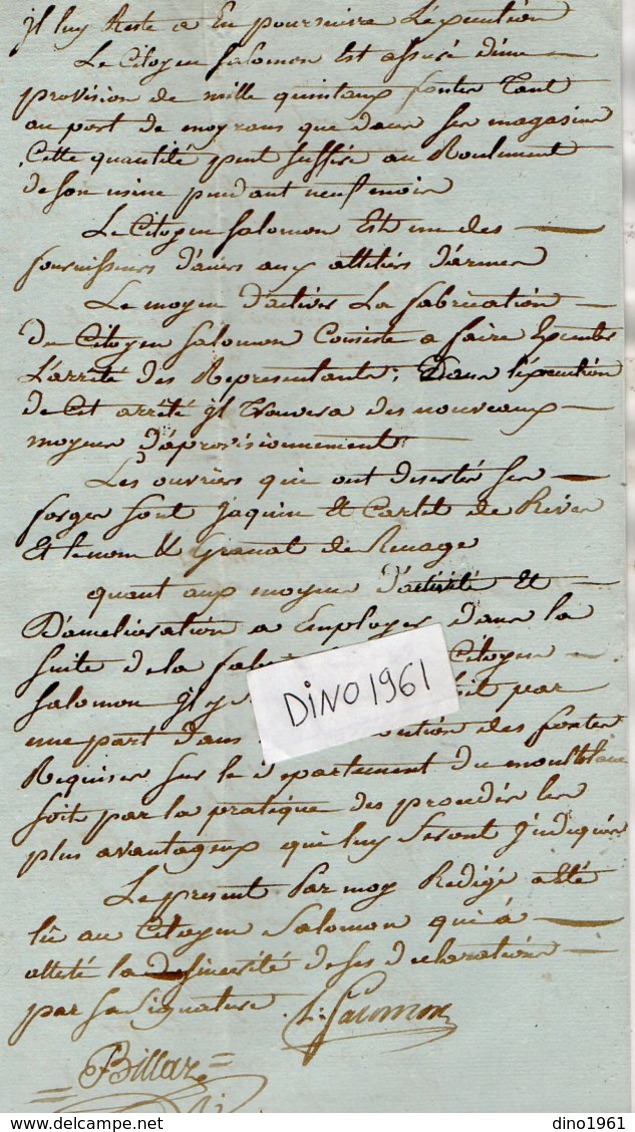 jl luy Reste a En poursuivre L'éxecution
Le Citoyen Salomon Est assuré d'une
provision de mille quintaux fontes Tant
au port de moyrans que dans ses magasins
Cette quantité peut suffire au Roulement
de son usine pendant neuf mois
Le Citoyen Salomon Est un des
fournisseurs d'aciers aux atteliés d'armes
Le moyen d'activer La fabrication
du Citoyen Salomon Consiste a faire Executer
L'arrêté des Representants; Dans l'éxecution
de Cet arrêté jl Trouvera des nouveaux
moyens d'aprovisionnement
Les ouvriers qui ont deserté ses
forges sont Jaquin Et Carlet de Rives
Et le nommé Granat de Renage
quant aux moyens d'activité Et
D'amelioration a Employer dans la
suite de la Citoyen
Salomon jl y soit par
une part dans des fontes
Requises sur le departement du montblanc
soit par la pratique des procédés les
plus avantageux qui luy seront Jndiqués
Le present Par moy Redigé a été
lû au Citoyen Salomon qui a
attété la sincerité de ses declarations
par sa signature. Salomon
Billaz
DINO1961
dino1961